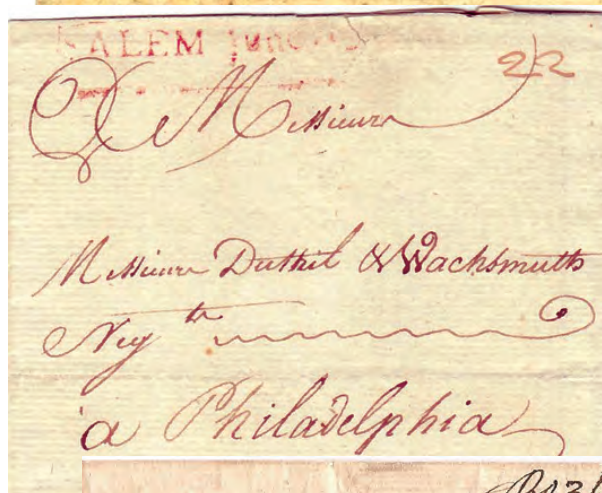 SALEM June
22
Messieurs
Messieurs Dutihl & Wachsmuth
Neg ts
a Philadelphia